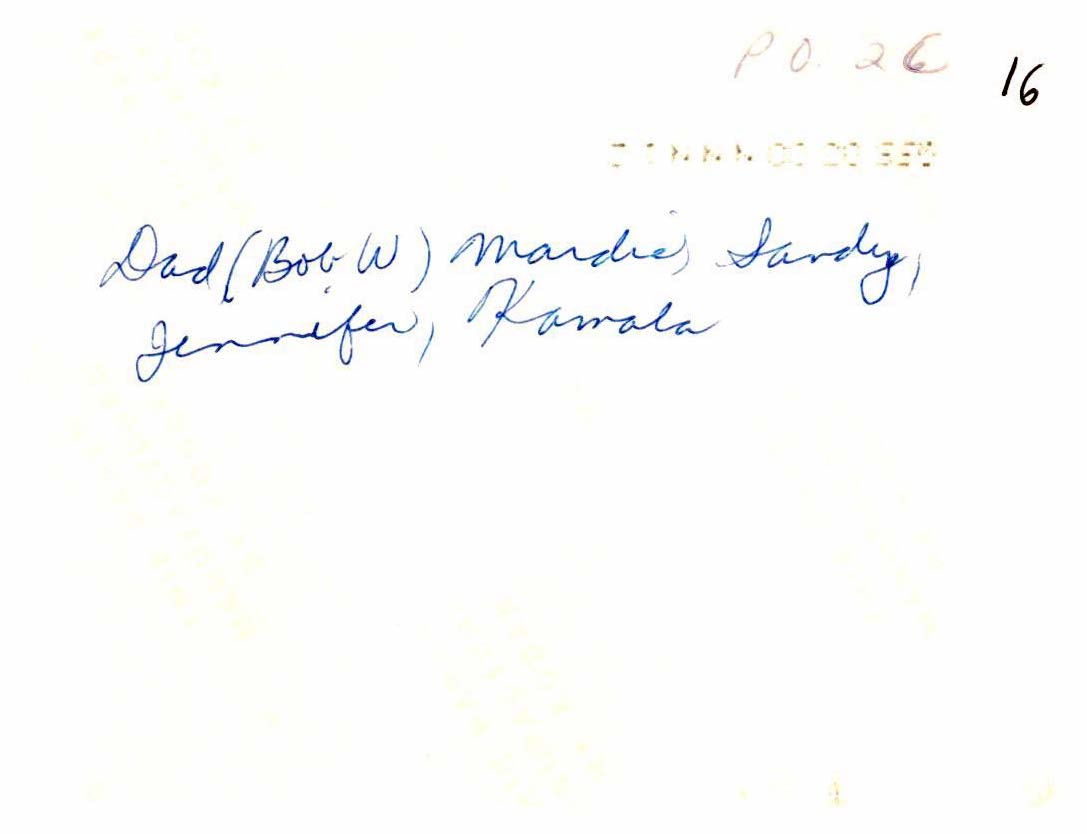 P O. 26
16
Dad (Bob W) Mardie, Sandy,
Jennifer, Kamala